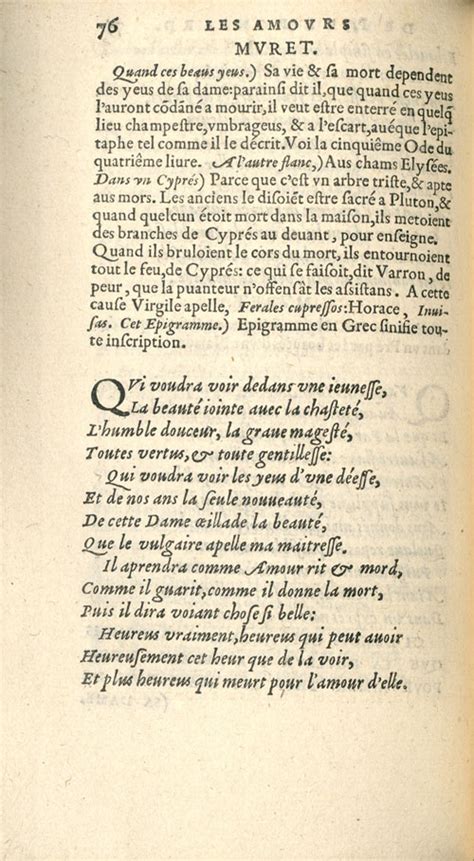 76 LES AMOVRS
MVRET.
Quand ces beaus yeus.) Sa vie & sa mort dependent
des yeus de sa dame:parainsi dit il,que quand ces yeus
l'auront cōdāné a mourir,il veut estre enterré en quelq̃
lieu champestre,vmbrageus, & a l'escart,auéque l'epi-
taphe tel comme il le décrit.Voi la cinquiéme Ode du
quatriéme liure. A l'autre flanc,) Aus chams Elysées.
Dans vn Cyprés) Parce que c'est vn arbre triste,& apte
aus mors. Les anciens le disoiēt estre sacré a Pluton,&
quand quelcun étoit mort dans la maison,ils metoient
des branches de Cyprés au deuant, pour enseigne.
Quand ils bruloient le cors du mort, ils entournoient
tout le feu,de Cyprés: ce qui se faisoit,dit Varron, de
peur, que la puanteur n'offensât les assistans. A cette
cause Virgile apelle, Ferales cupressos:Horace, Inui-
sas. Cet Epigramme.) Epigramme en Grec sinifie tou-
te inscription.
QVi voudra voir dedans vne ieunesse,
La beauté iointe auec la chasteté,
L'humble douceur, la graue magesté,
Toutes vertus,& toute gentillesse:
Qui voudra voir les yeus d'vne déesse,
Et de nos ans la seule nouueauté,
De cette Dame œillade la beauté,
Que le vulgaire apelle ma maitresse.
Il aprendra comme Amour rit & mord,
Comme il guarit,comme il donne la mort,
Puis il dira voiant chose si belle:
Heureus vraiment,heureus qui peut auoir
Heureusement cet heur que de la voir,
Et plus heureus qui meurt pour l'amour d'elle.